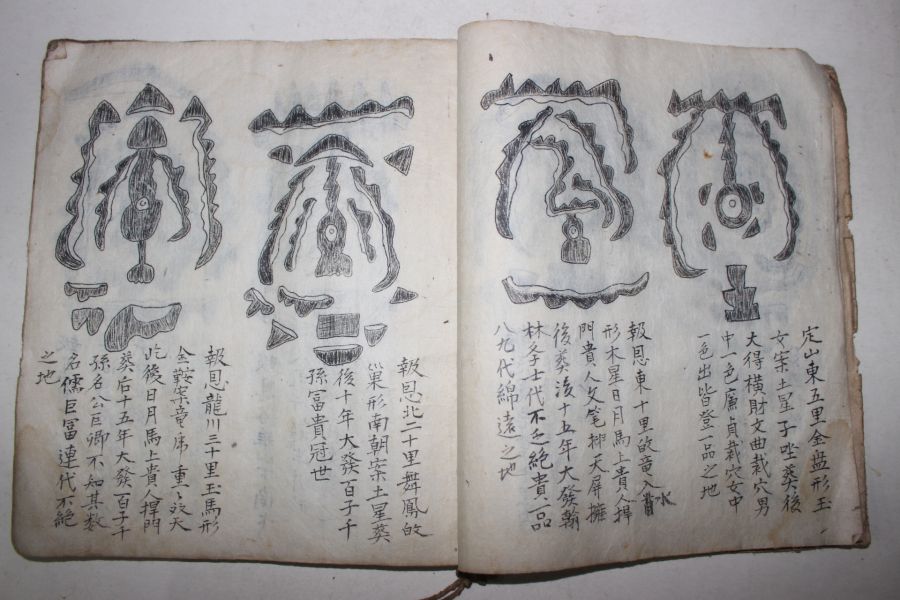 定山東五里金盘形玉
女案土星子坐葬後
大得橫財文曲裁穴男
中一色廉貞裁穴女中
一色出皆登一品之地
報恩東十里的竜入首水
形木星日月馬上貴人捍
門貴人文笔排天屏擁
後葬後十五年大發翰
林多士代不乏絕貴一品
八九代綿遠之地
報恩北二十里舞鳳的
巢形南朝案土星葬
後十年大發百子千
孫冨貴冠世
報恩龍川三十里玉馬形
金鞍案竜席重〻
此後日月馬上貴人捍門
葵后十五年大發百子千
孫名公巨卿不知其数
名儒巨冨連代不絕
之地